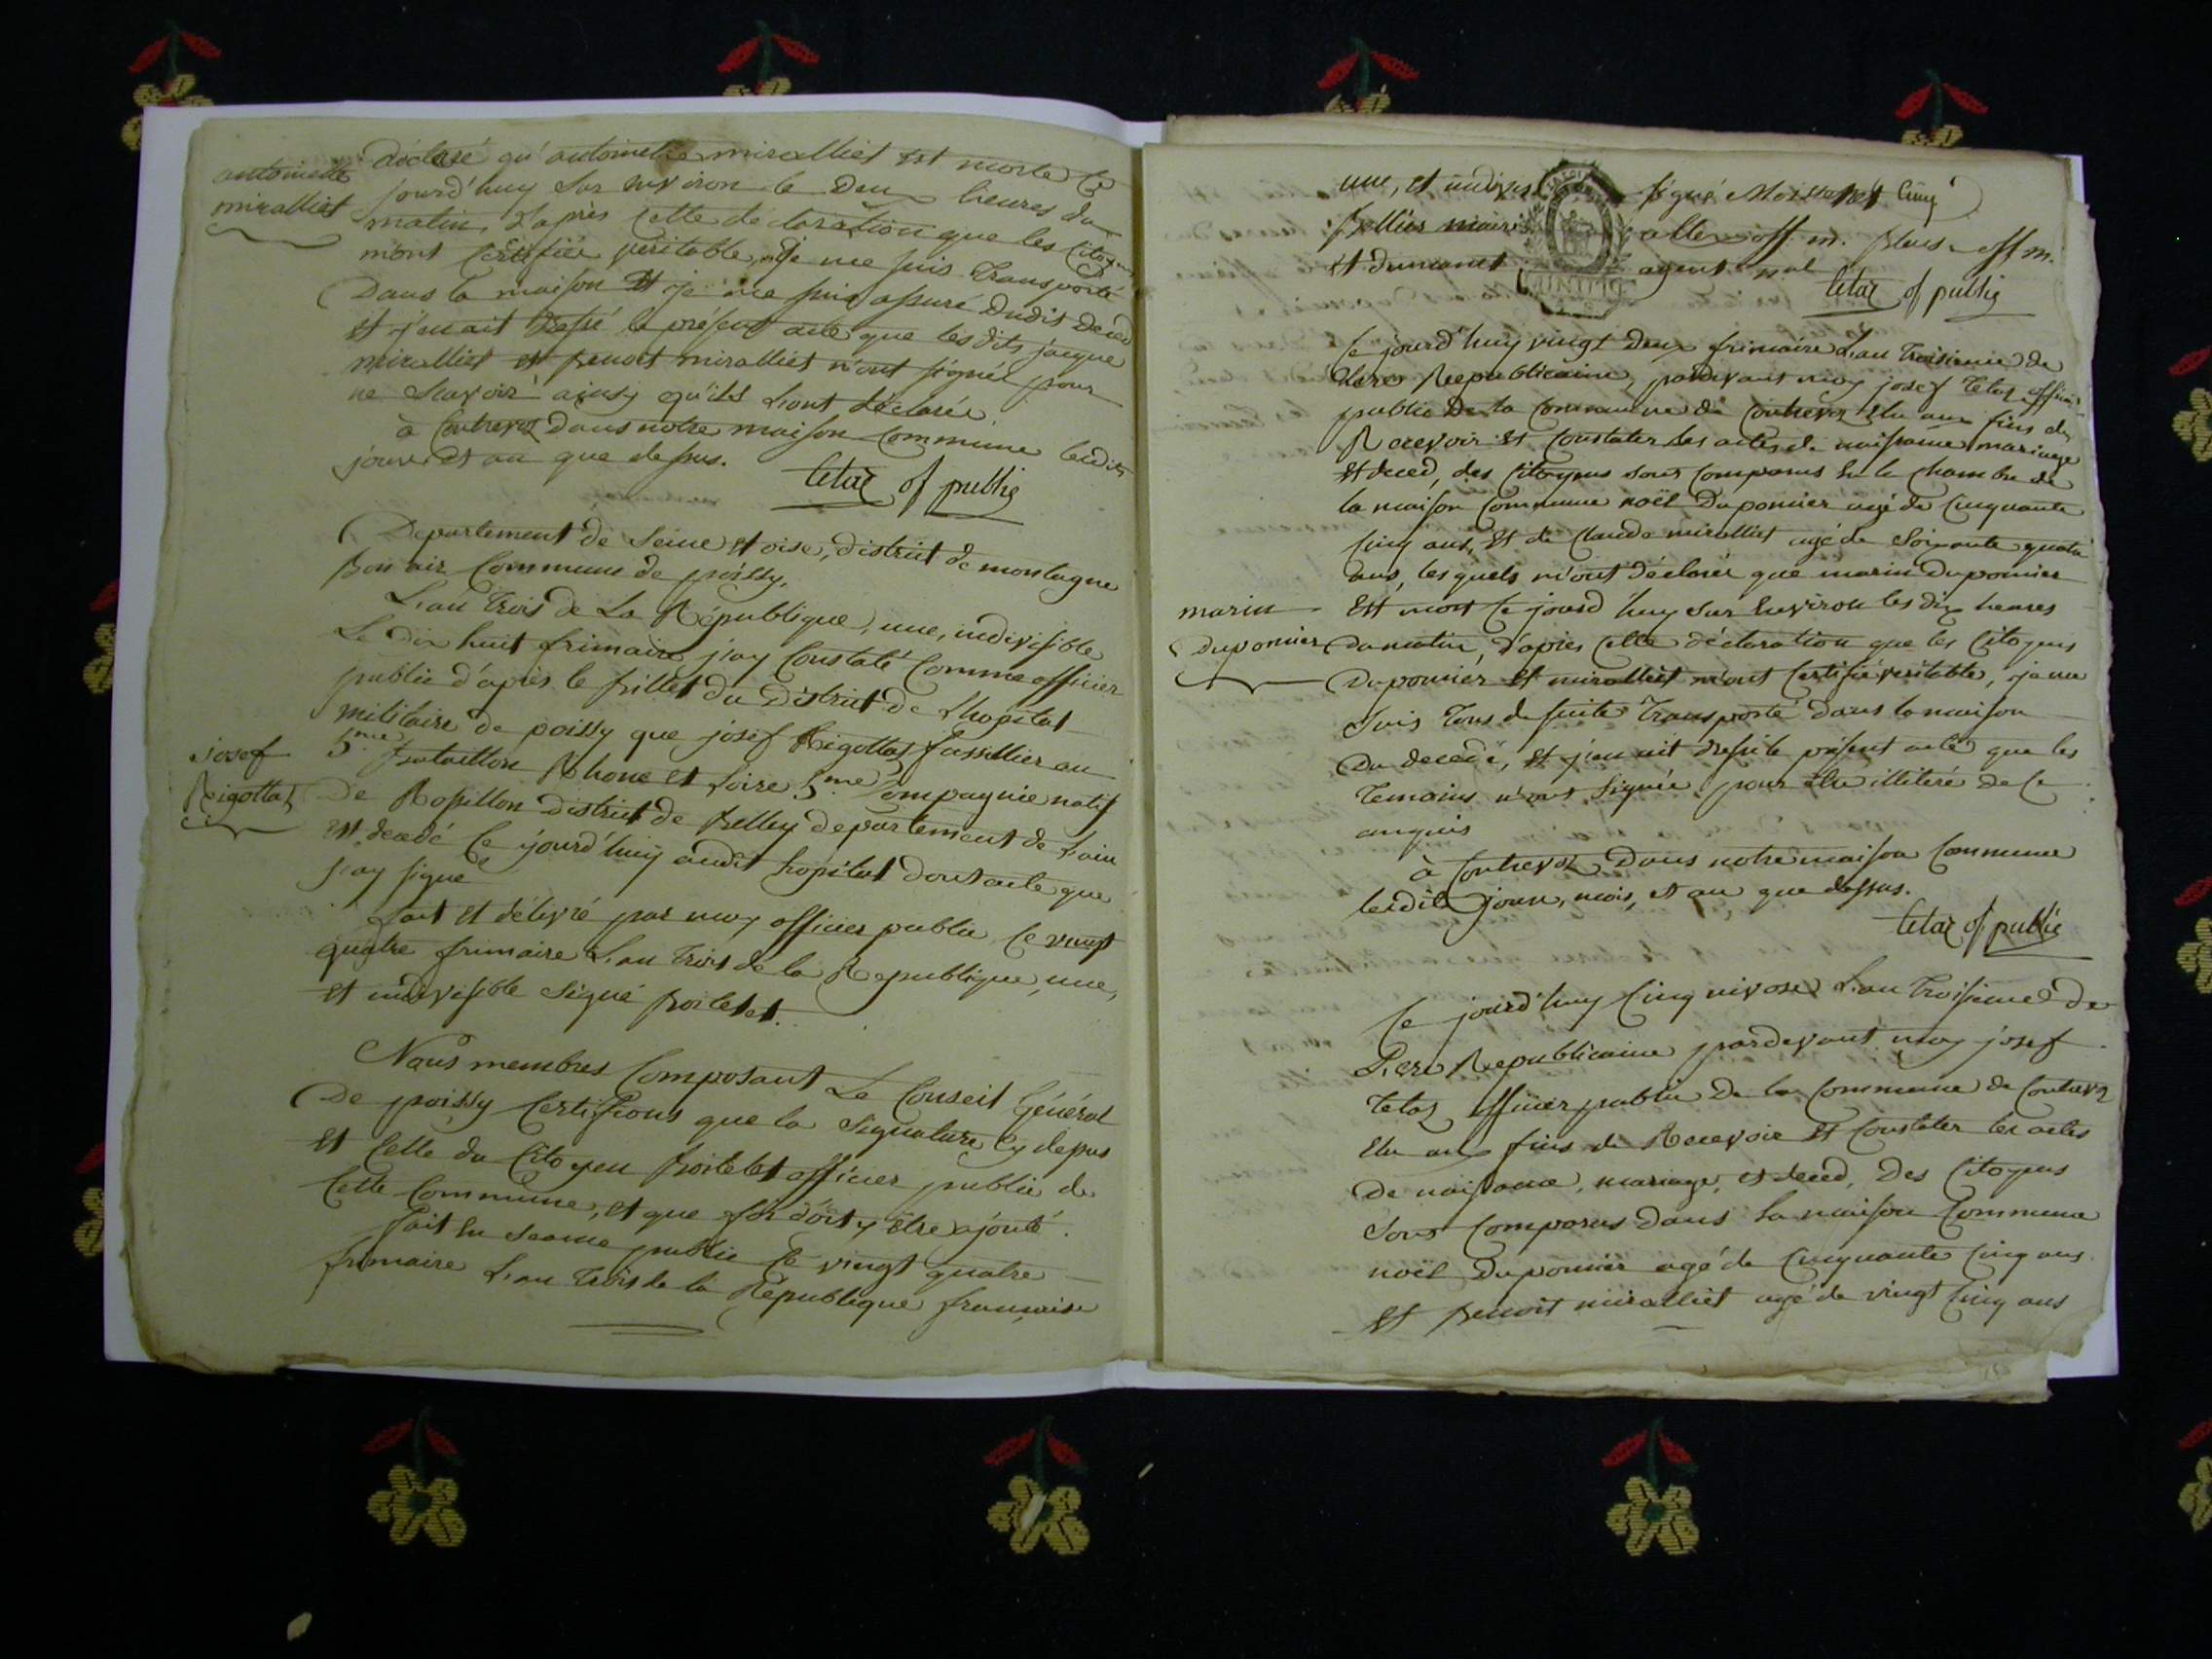 antoinette
miralliet
déclaré qu'antoinette miralliet est morte ce
jourd'huy sur environ le deux heures du
matin, d'après cette déclaration que les citoyens
m'ont certifiée veritable, je me suis transporté
Dans la maison et je me suis assuré dudit deced
et j'en ait dressé le présent acte que lesdits jacque
miralliet et Benoit miralliet n'ont signée pour
ne scavoir ainsy qu'ils l'ont déclarée
à Contrevoz dans notre maison Commune lesdits
jour et an que dessus.
tetaz of public
Departement de Seine et oise, district de montagne
Bon air Commune de poissy.
L'an trois de La République, une, indivisible
Le dix huit frimaire j'ay Constaté Comme officier
public d'après le billet du District de L'hopital
militaire de poissy que josef Rigottaz fussillier au
josef
Rigottaz
5.me Bataillon Rhone et Loire 5.me Compagnie natif
De Rossillon district de Belley departement de L'ain
est decedé ce jourd'huy audit hopital dont acte que
j'ay signé
fait et délivré par moy officier public ce vingt
quatre frimaire L'an trois de la Republique, une,
et indivisible signé
Nous membres Composant Le Conseil Général
De poissy Certifions que la signature cy depus
et celle du Citoyen officier public de
cette Commune, et que foi doit y être ajouté.
fait en seance public ce vingt quatre
frimaire L'an trois de la Republique française
une, et indivis signé
maire off. m. off m.
et dumanet agent n.al
tetaz of public
Ce jourd'huy vingt deux frimaire L'an troisieme de
L'ere Republicaine, pardevant moy josef tetaz officier
public de la Commune de Contrevoz Elu aux fins de
Recevoir et Constater les actes de naissance mariage
et deced, des Citoyens sont Comparus en la Chambre de
la maison Commune noël Duponnier agé de Cinquante
Cinq ans, et de Claude miralliet agé de soixante quatre
ans, lesquels m'ont déclarée que marin Duponnier
marin
Duponnier
Est mort ce jourd'huy sur environ les dix heures
Du matin, d'après cette déclaration que les Citoyens
Duponnier et miralliet m'ont certifié veritable, je me
suis tous de suite transporté dans la maison
Du decedé, et j'en ait dressé le présent acte que les
temoins n'ont signée pour etre illiteré de ce
enquis
à Contrevoz Dans notre maison Commune
lesdits jour, mois, et an que dessus.
tetaz of public
Ce jourd'huy Cinq nivose L'an troisieme de
L'ere Republicaine pardevant moy josef
tetaz officier public de la Commune de Contrevoz
Elu aux fins de Recevoir et Constater les actes
De naissance, mariage, et deced, Des Citoyens
sont Comparus Dans la maison Commune
noël Duponnier agé de Cinquante Cinq ans
et Benoit miralliet agé de vingt Cinq ans